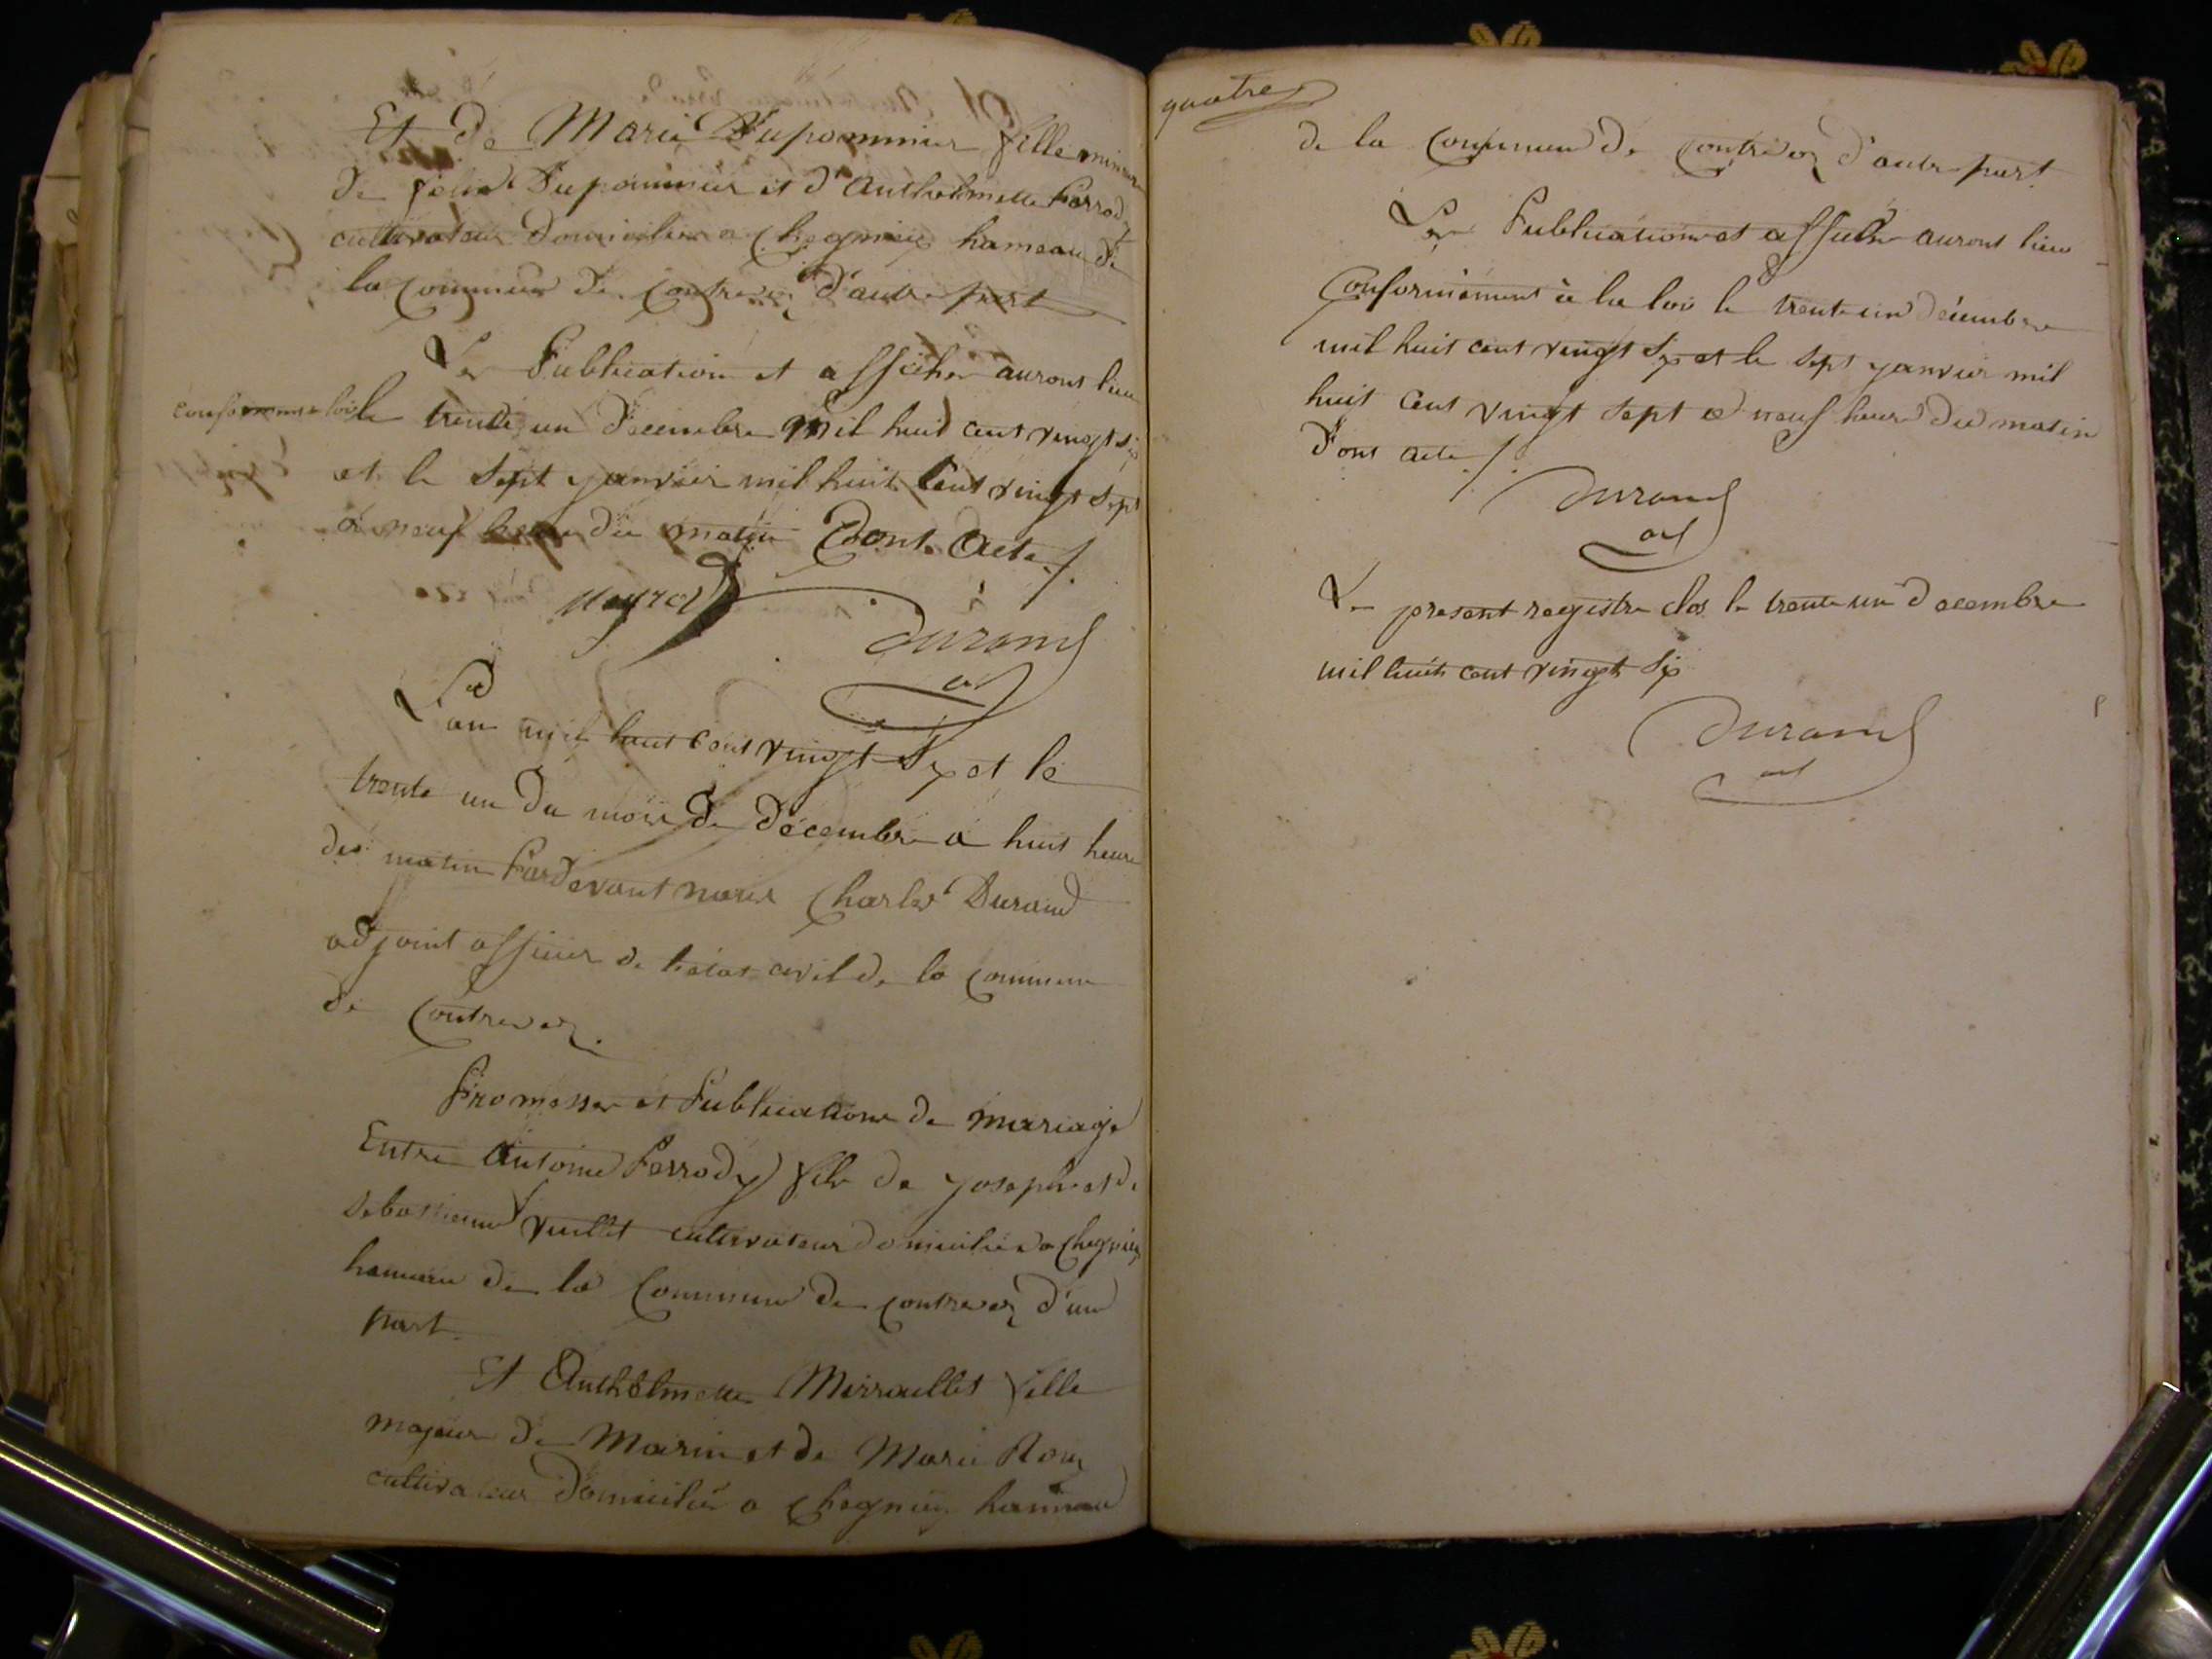 Et de Marie Dupommier fille mineure
de felix Dupommier et d'Anthelmette Perrody
cultivateur domiciliés a Chegnieu hameau de
la Commune de Contrevoz d'autre part
Les Publication et affiches auront lieu
conforme a loi le trente un Decembre Mil huit cent vingt six
et le Sept janvier mil huit Cent vingt sept
a neuf heure du matin Dont Acte ./.
Durand
ad
L'an mil huit Cent vingt Six et le
trente un du mois de Décembre a huit heure
du matin Pardevant nous Charles Durand
adjoint officier de l'état civil de la Commune
de Contrevoz.
Promesses et Publications de mariage
Entre Antoine Perrody fils de joseph et de
Sebastienne Vuillet cultivateur domiciliés a Chegnieu
hameau de la Commune de Contrevoz d'une
part.
Et Anthelmette Mirraillet fille
majeure de Marin et de Marie Roux
cultivateur Domiciliés a Chegnieu hameau
quatre
de la Commune de Contrevoz d'autre part.
Les Publications et affiches auront lieu
Conformément à la loi le trente un décembre
mil huit cent vingt Six et le sept janvier mil
huit Cent Vingt Sept a neuf heure du matin
Dont acte ./.
Durand
ad
Le present registre clos le trente un Decembre
mil huit cent vingt Six
Durand
ad